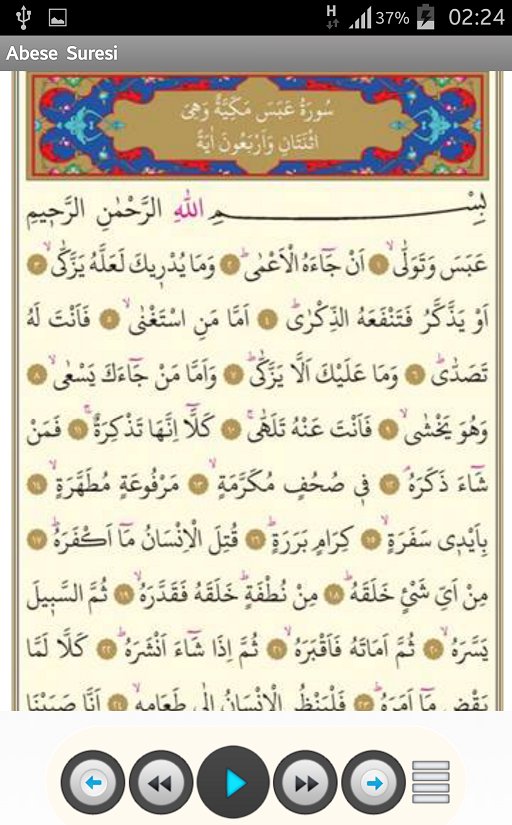 H 37% 02:24
Abese Suresi
سُورَةُ عَبَسَ مَكِّيَّةٌ وَهِىَ
اثْنَتَانِ وَاَرْبَعُونَ اٰيَةً
بِسْمِ اللّٰهِ الرَّحْمٰنِ الرَّحٖيمِ
عَبَسَ وَتَوَلّٰىۙ ﴿١﴾ اَنْ جَٓاءَهُ الْاَعْمٰىؕ ﴿٢﴾ وَمَا يُدْرٖيكَ لَعَلَّهُ يَزَّكّٰىۙ ﴿٣﴾
اَوْ يَذَّكَّرُ فَتَنْفَعَهُ الذِّكْرٰىؕ ﴿٤﴾ اَمَّا مَنِ اسْتَغْنٰىۙ ﴿٥﴾ فَاَنْتَ لَهُ
تَصَدّٰىؕ ﴿٦﴾ وَمَا عَلَيْكَ اَلَّا يَزَّكّٰىؕ ﴿٧﴾ وَاَمَّا مَنْ جَٓاءَكَ يَسْعٰىۙ ﴿٨﴾
وَهُوَ يَخْشٰىۙ ﴿٩﴾ فَاَنْتَ عَنْهُ تَلَهّٰىۚ ﴿١٠﴾ كَلَّٓا اِنَّهَا تَذْكِرَةٌۚ ﴿١١﴾ فَمَنْ
شَٓاءَ ذَكَرَهُۘ ﴿١٢﴾ فٖى صُحُفٍ مُكَرَّمَةٍۙ ﴿١٣﴾ مَرْفُوعَةٍ مُطَهَّرَةٍۙ ﴿١٤﴾
بِاَيْدٖى سَفَرَةٍۙ ﴿١٥﴾ كِرَامٍ بَرَرَةٍؕ ﴿١٦﴾ قُتِلَ الْاِنْسَانُ مَٓا اَكْفَرَهُؕ ﴿١٧﴾
مِنْ اَىِّ شَیْءٍ خَلَقَهُؕ ﴿١٨﴾ مِنْ نُطْفَةٍؕ خَلَقَهُ فَقَدَّرَهُۙ ﴿١٩﴾ ثُمَّ السَّبٖيلَ
يَسَّرَهُۙ ﴿٢٠﴾ ثُمَّ اَمَاتَهُ فَاَقْبَرَهُۙ ﴿٢١﴾ ثُمَّ اِذَا شَٓاءَ اَنْشَرَهُؕ ﴿٢٢﴾ كَلَّا لَمَّا
يَقْضِ مَٓا اَمَرَهُؕ ﴿٢٣﴾ فَلْيَنْظُرِ الْاِنْسَانُ اِلٰى طَعَامِهٖۙ ﴿٢٤﴾ اَنَّا صَبَبْنَا